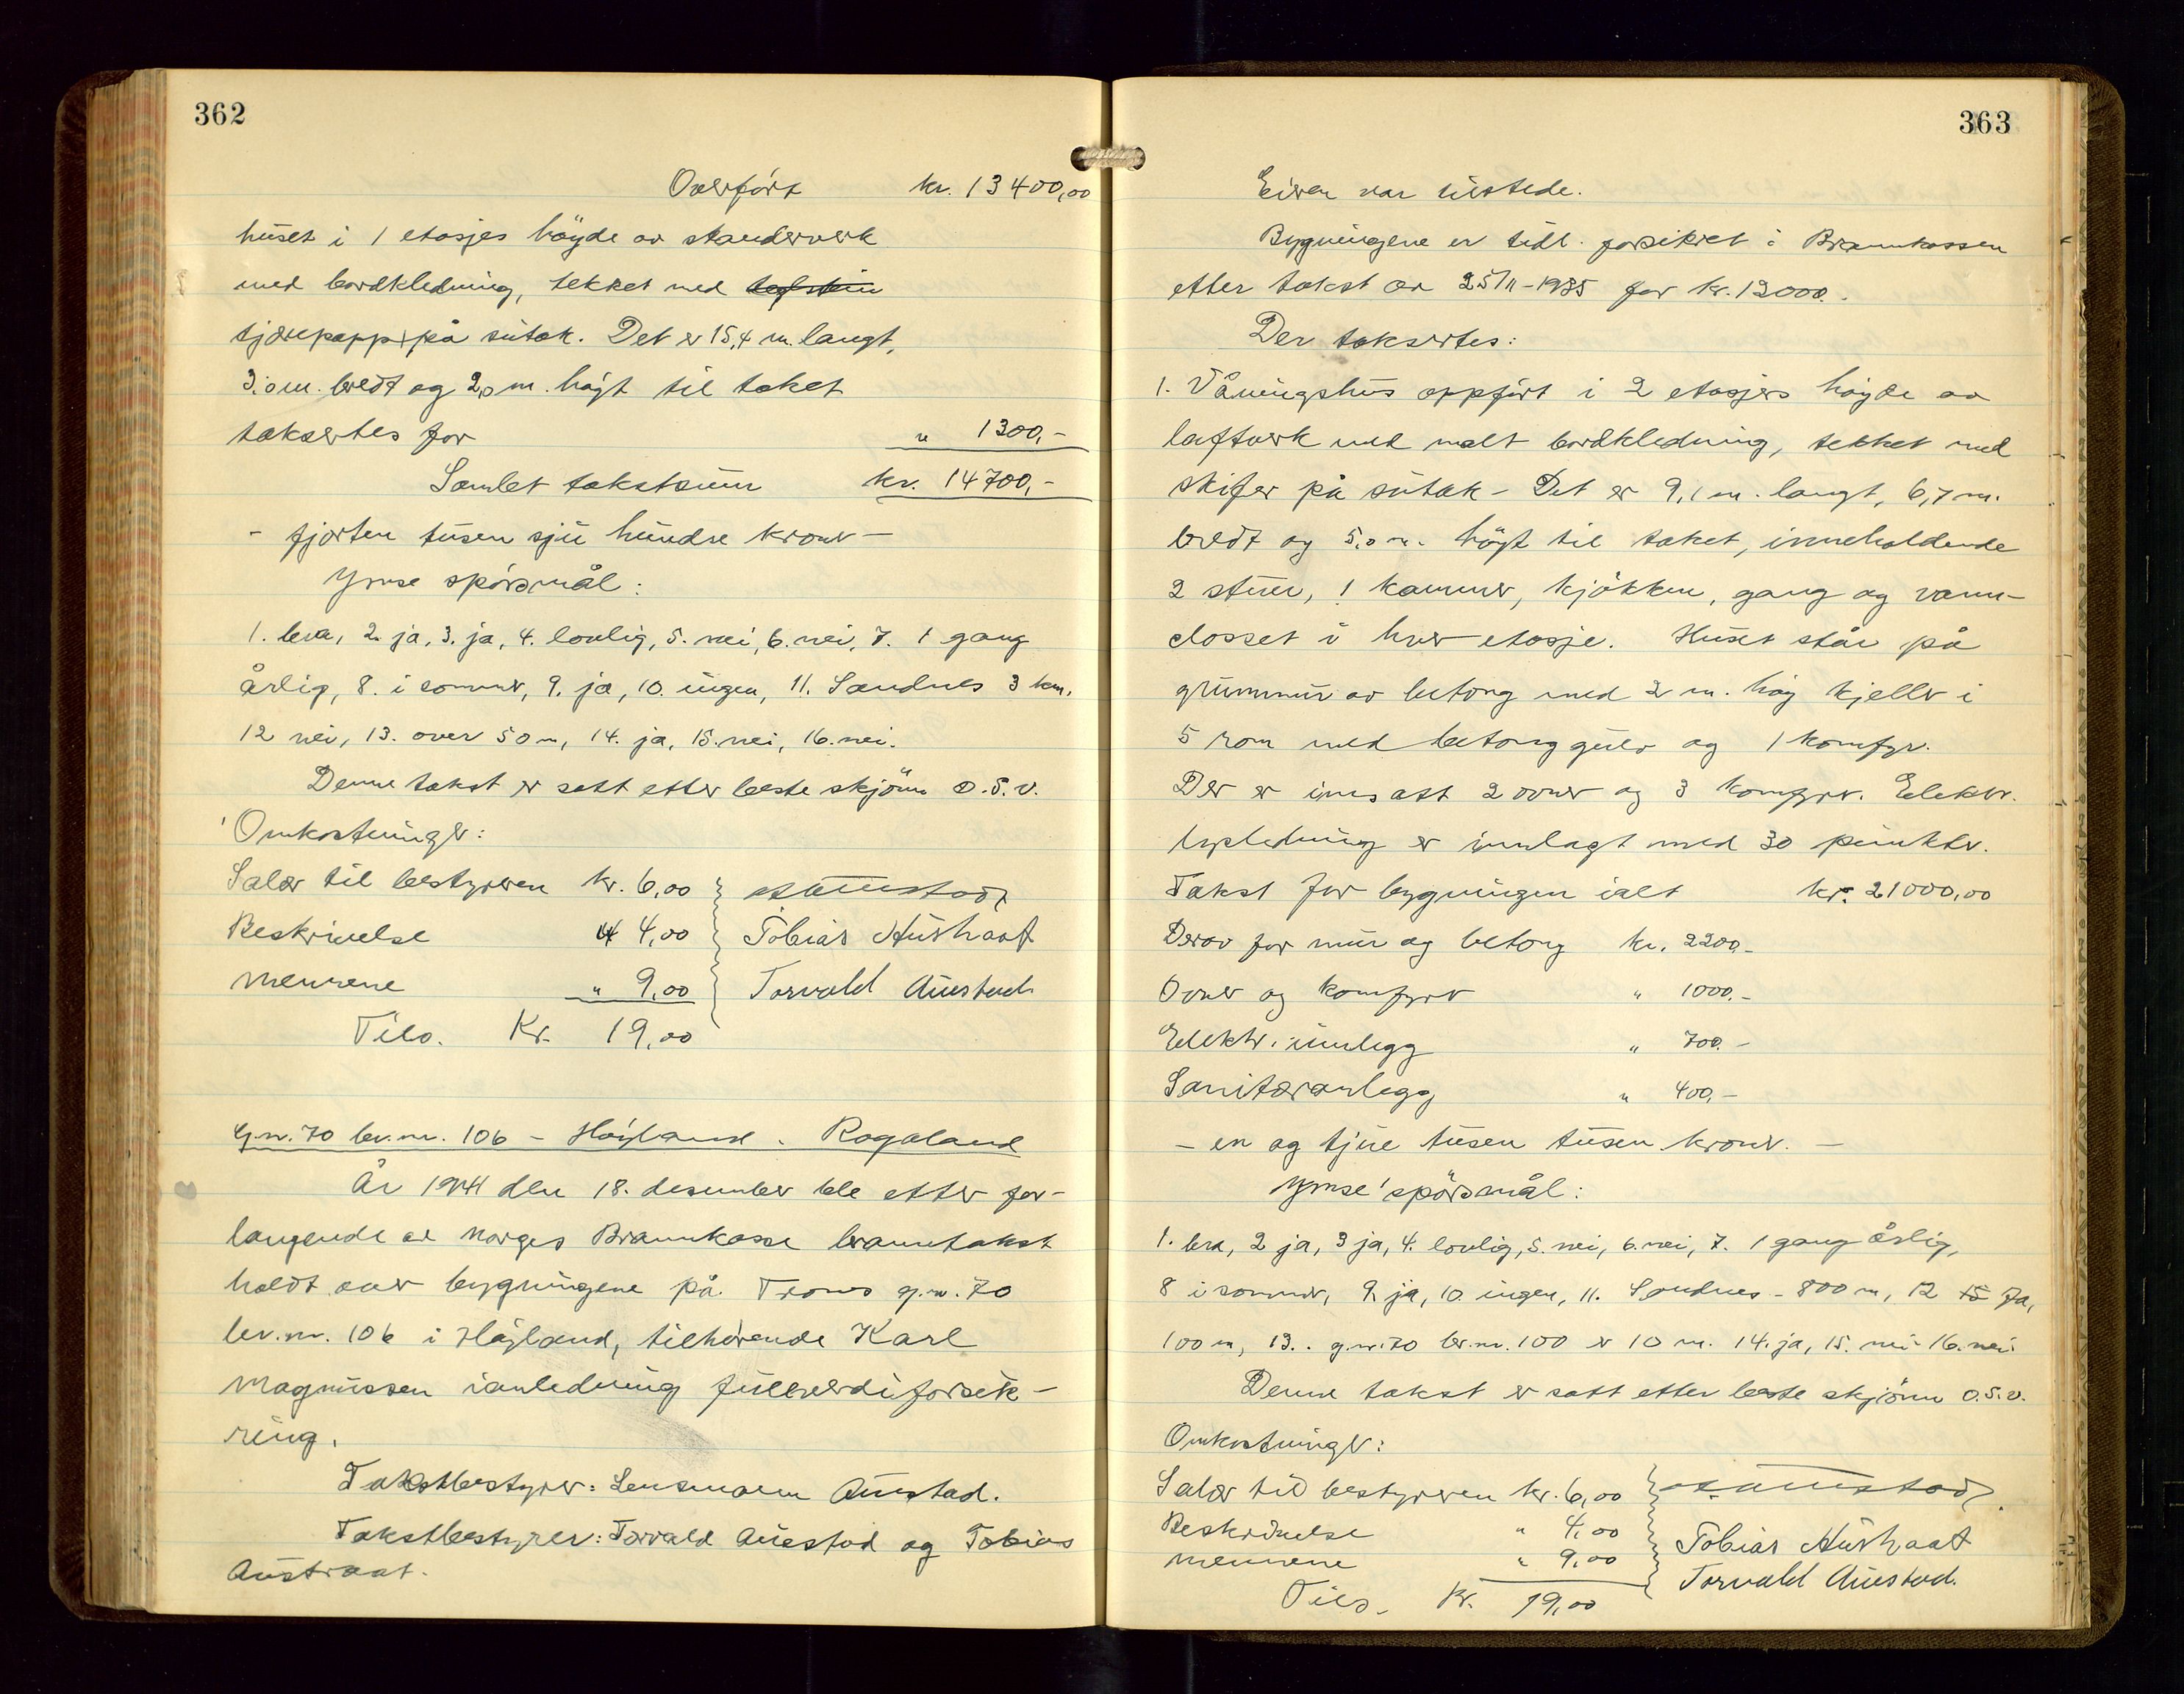 362
Overført kr. 13400,00
huset i 1 etasjes höyde av standerverk
med bordkledning, tekket med teglstein
tjærepapp på sutak. Det er 15,4 m. langt,
3.0 m. bredt og 2,0 m. höyt til taket
taksertes for " 1300,-
Samlet takstsum kr. 14700,-
- fjorten tusen sju hundre kroner -
Ymse spörsmål:
1. bra, 2. ja, 3. ja, 4. lovlig, 5. nei, 6. nei, 7. 1 gang
årlig, 8. i sommer, 9. ja, 10. ingen, 11. Sandnes 3 km.
12 nei, 13. over 50 m, 14. ja, 15. nei, 16. nei.
Denne takst er satt etter beste skjönn o.s.v.
Omkostninger:
Salær til bestyreren kr. 6,00
Beskrivelse " 4,00 Tobias Austraat
Mennene " 9,00 Torvald Auestad
Tils. Kr. 19,00
G.nr. 70 br.nr. 106 - Höyland. Rogaland
År 1941 den 18. desember ble etter for-
langende av Norges Brannkasse branntakst
holdt over bygningene på Trones g.nr. 70
br.nr. 106 i Höyland, tilhörende Karl
Magnussen i anledning fullverdiforsik-
ring.
Takstbestyrer: Lensmann Auestad.
Takstbestyrer: Torvald Auestad og Tobias
Austraat.
363
Eieren var tilstede.
Bygningene er tidl. forsikret i Brannkassen
etter takst av 25/11-1935 for kr. 12000.
Der taksertes:
1. Våningshus oppført i 2 etasjers höyde av
laftverk med malt bordkledning, tekket med
skifer på sutak - Det er 9,1 m. langt, 6,7 m.
bredt og 5,0 m. höyt til taket, inneholdende
2 stuer, 1 kammer, kjökken, gang og vann-
closset i hver etasje. Huset står på
grunnmur av betong med 2 m. höy kjeller i
5 rom med betonggulv og 1 komfyr.
Der er innsatt 2 ovner og 3 komfyrer. Elektr.
lysledning er innlagt med 30 punkter.
Takst for bygningen ialt kr. 21000,00
Derav for mur og betong kr. 2200.-
Ovner og komfyrer " 1000.-
Elektr. innlegg " 700.-
Sanitæranlegg " 400,-
- en og tjue tusen tusen kroner. -
Ymse spörsmål:
1. bra, 2 ja, 3 ja, 4. lovlig, 5. nei, 6. nei, 7. 1 gang årlig,
8 i sommer, 9. ja, 10. ingen, 11. Sandnes - 800 m, 12 Ja,
100 m, 13. g.nr. 70 br.nr. 100 er 10 m. 14. ja, 15. nei 16. nei
Denne takst er satt etter beste skjönn o.s.v.
Omkostninger:
Salær til bestyreren kr. 6,00
Beskrivelse " 4,00 Tobias Austraat
Mennene " 9,00 Torvald Auestad.
Tils. Kr. 19,00